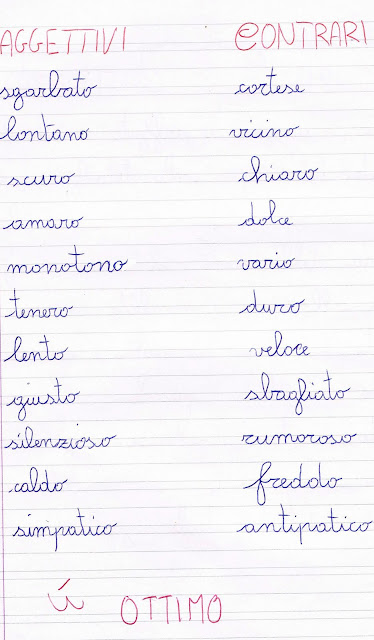 AGGETTIVI CONTRARI
sgarbato cortese
lontano vicino
scuro chiaro
amaro dolce
monotono vario
tenero duro
lento veloce
giusto sbagliato
silenzioso rumoroso
caldo freddo
simpatico antipatico
OTTIMO